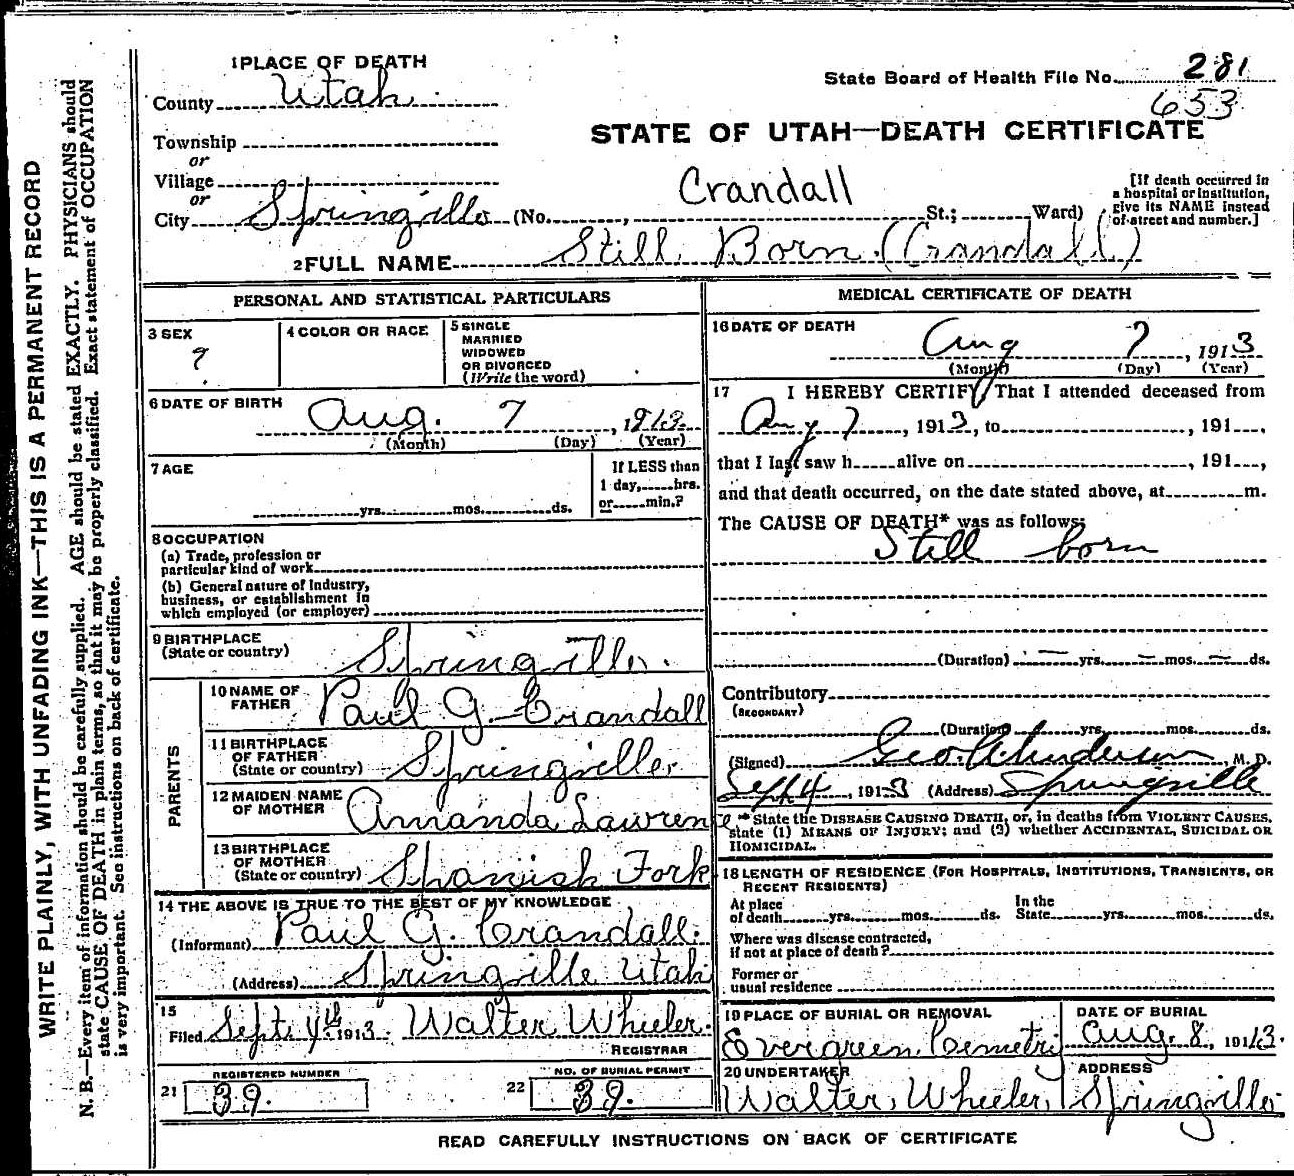 1 PLACE OF DEATH
State Board of Health File No. 281
County Utah
653
STATE OF UTAH—DEATH CERTIFICATE
Township
or
Village
or
Crandall
[If death occurred in a hospital or institution, give its NAME instead of street and number.]
City Springville (No. , St.; Ward)
2 FULL NAME Still Born (Crandall)
PERSONAL AND STATISTICAL PARTICULARS
3 SEX
?
4 COLOR OR RACE
5 SINGLE
MARRIED
WIDOWED
OR DIVORCED
(Write the word)
6 DATE OF BIRTH
Aug. 7, 1913
(Month) (Day) (Year)
7 AGE
yrs. mos. ds.
If LESS than
1 day, hrs.
or min.?
8 OCCUPATION
(a) Trade, profession or
particular kind of work
(b) General nature of Industry,
business, or establishment in
which employed (or employer)
9 BIRTHPLACE
(State or country) Springville.
PARENTS
10 NAME OF
FATHER Paul G. Crandall
11 BIRTHPLACE
OF FATHER
(State or country) Springville
12 MAIDEN NAME
OF MOTHER Amanda Lawrence
13 BIRTHPLACE
OF MOTHER
(State or country) Spanish Fork
14 THE ABOVE IS TRUE TO THE BEST OF MY KNOWLEDGE
(Informant) Paul G. Crandall.
(Address) Springville Utah
15
Filed Sept. 4th 1913. Walter Wheeler.
REGISTRAR
REGISTERED NUMBER
21 39.
NO. OF BURIAL PERMIT
22 39.
MEDICAL CERTIFICATE OF DEATH
16 DATE OF DEATH
Aug 7, 1913
(Month) (Day) (Year)
17 I HEREBY CERTIFY, That I attended deceased from
Aug 7, 1913, to , 191 ,
that I last saw h alive on , 191 ,
and that death occurred, on the date stated above, at m.
The CAUSE OF DEATH* was as follows:
Still born
(Duration) — yrs. — mos. — ds.
Contributory
(SECONDARY)
(Duration) yrs. mos. ds.
(Signed) Geo. Anderson, M. D.
Sept 4, 1913 (Address) Springville
*State the DISEASE CAUSING DEATH, or, in deaths from VIOLENT CAUSES,
state (1) MEANS OF INJURY; and (2) whether ACCIDENTAL, SUICIDAL OR
HOMICIDAL.
18 LENGTH OF RESIDENCE (FOR HOSPITALS, INSTITUTIONS, TRANSIENTS, OR
RECENT RESIDENTS)
At place
of death yrs. mos. ds.
In the
State yrs. mos. ds.
Where was disease contracted,
if not at place of death?
Former or
usual residence
19 PLACE OF BURIAL OR REMOVAL
Evergreen Cemetry
DATE OF BURIAL
Aug. 8, 1913.
20 UNDERTAKER
Walter Wheeler,
ADDRESS
Springville
READ CAREFULLY INSTRUCTIONS ON BACK OF CERTIFICATE
WRITE PLAINLY, WITH UNFADING INK—THIS IS A PERMANENT RECORD
N. B.—Every item of information should be carefully supplied. AGE should be stated EXACTLY. PHYSICIANS should
state CAUSE OF DEATH in plain terms, so that it may be properly classified. Exact statement of OCCUPATION
is very important. See instructions on back of certificate.